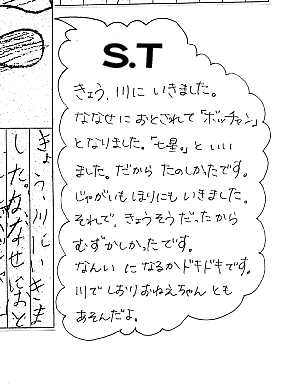 S.T
きょう、川に いきました。
ななせに おとされて「ボッチャン」
となりました。「七星。」と いい
ました。だから たのしかったです。
じゃがいもほりにも いきました。
それで、きょうそうだったから
むずかしかったです。
なんい に なるか ドキドキです。
川で しおりおねえちゃん とも
あそんだよ。
きょう、川にいきま
した。ななせにおと